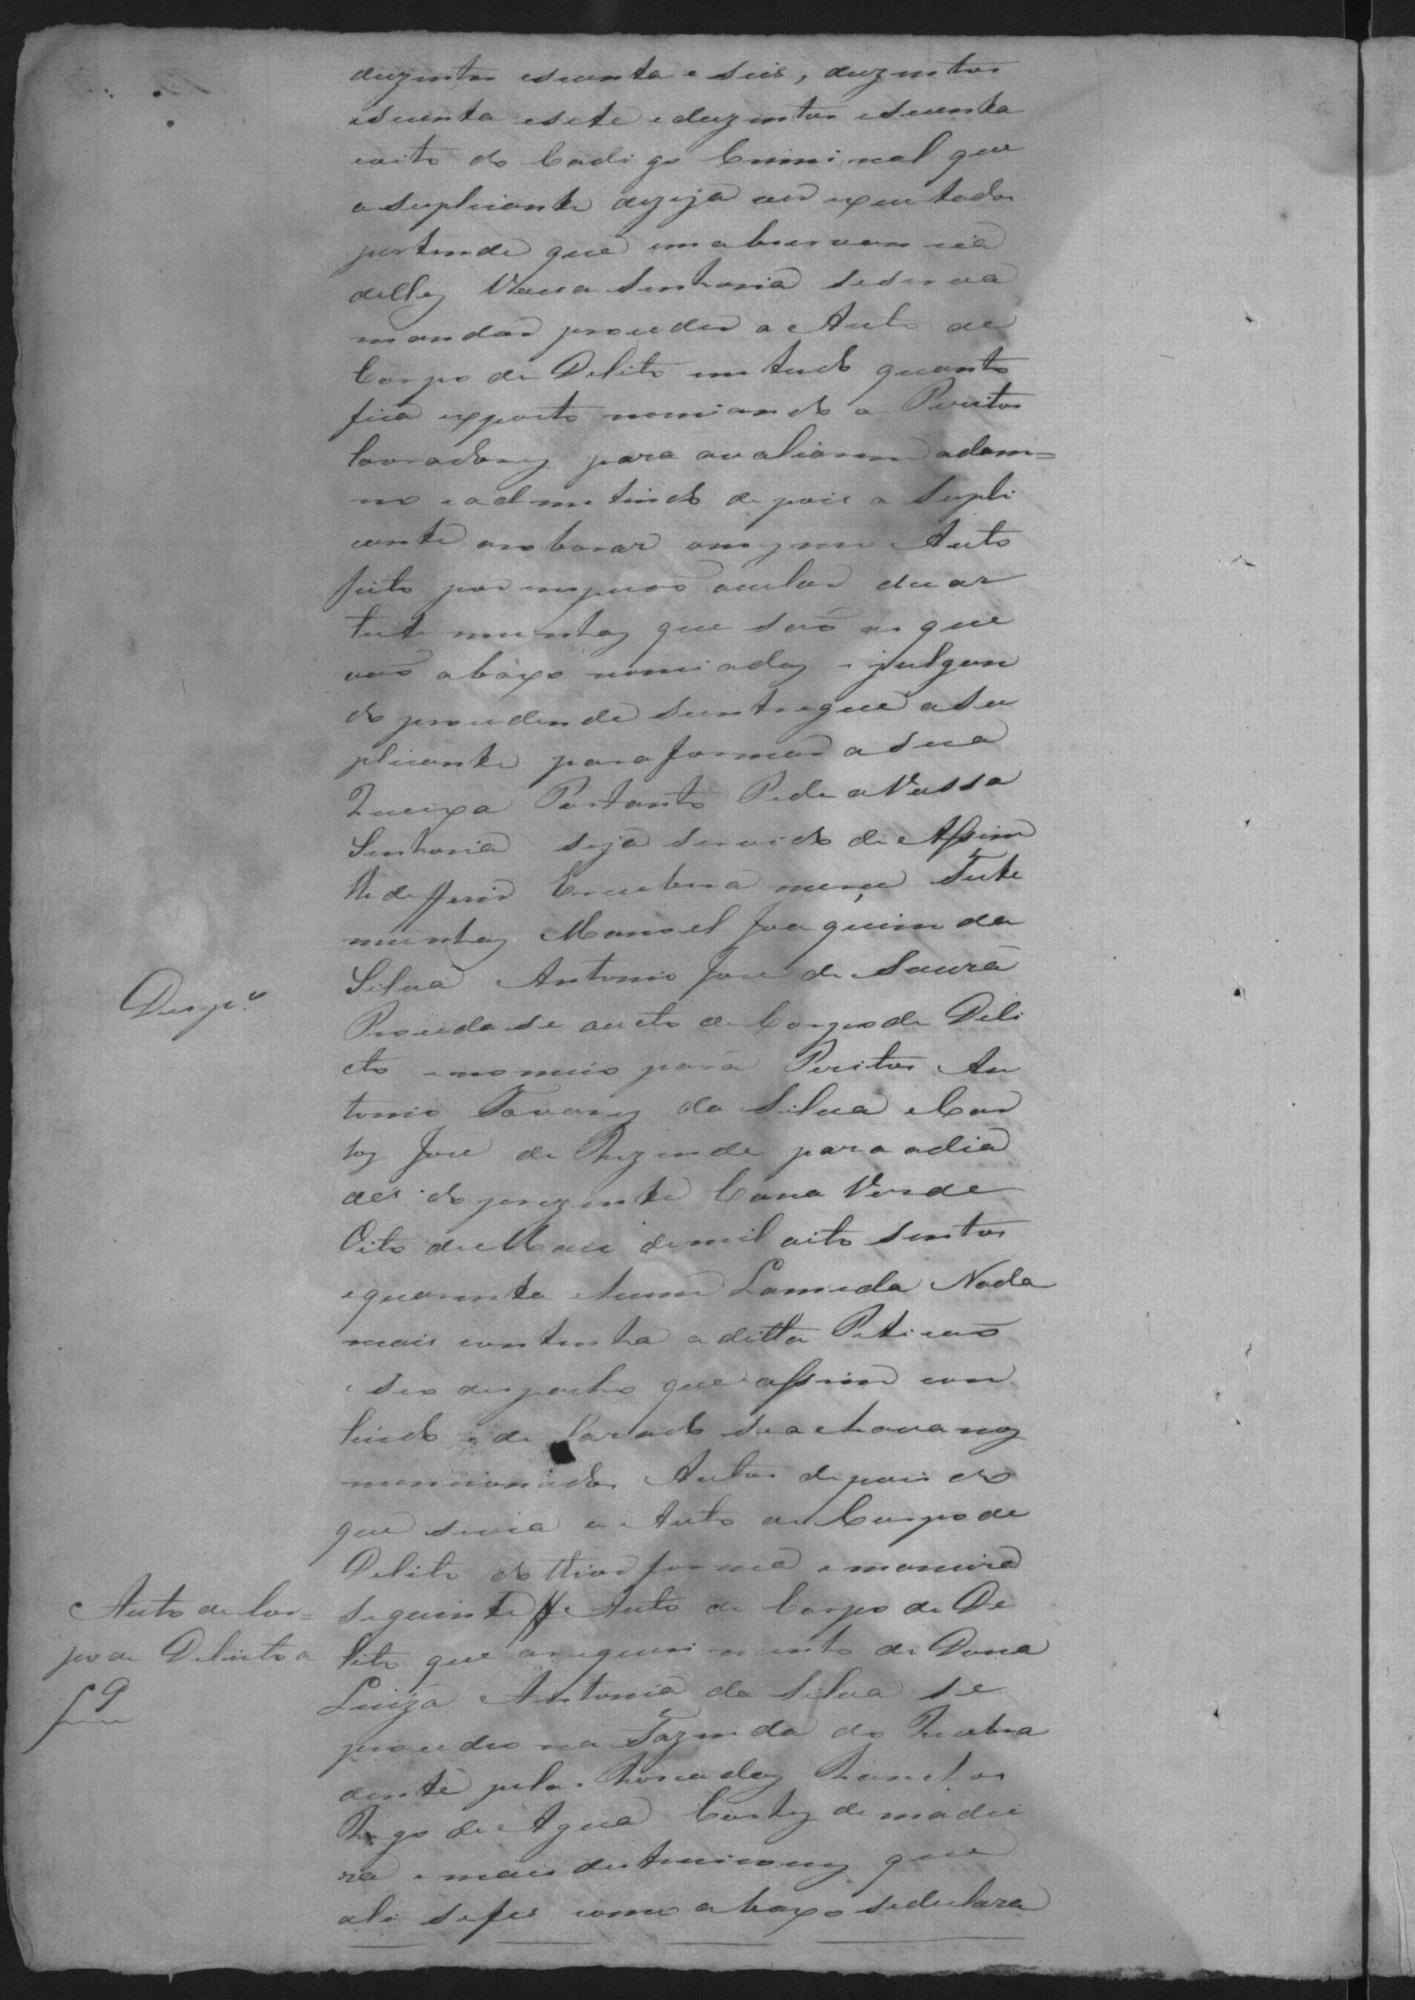 duzentos esecenta e seis, duzentos
esecenta esete eduzentos esecenta
eoito do Codigo Criminal que
a suplicante dezeja ver executados
pertende que em observancia
della Vossa Senhoria sesirva
mandar proceder a Auto de
Corpo de Delito em tudo quanto
fica exposto nomiando a Peritos
Lavradores para avaliarem odam=
no eadmetindo depois a Supli
cante
feito por
testemunhas que são as que
vão abaxo nomiadas e julgan
do procedende seentregue aSu
plicante para formar a sua
Queixa Portanto Pede aVossa
Senhoria seja servido de Assim
lhe defferir Erecebera merce Teste
munhas Manoel Joaquim da
Silva Antonio Jose de Souza
Desp.o
Proceda se aucto de Corpo de Deli
cto enomeio para Peritos An
tonio Tavares da Silva e Car
los Jose de Rezende para odia
des do prezente Cana Verde
Oito de Maio demil oito sentos
equarenta ehum Lameda Nada
mais continha a ditta Peticão
e seo despacho que assim con
tindo e declarado seachava nos
mencionados Autos depois do
que sevia o Auto de Corpo de
Delito do thior forma emaneira
Auto de Cor=
po de Delicto a
f 9
seguinte Auto de Corpo de De
lito que arequerimento de Dona
Luiza Antonia da Silva se
procedeo na Fazenda do Quebra
dente pelas Rossadas Ranchos
Rego de Agua Cortes de madei
ra emais destruicoens que
ali sefes como abaxo sedeclara